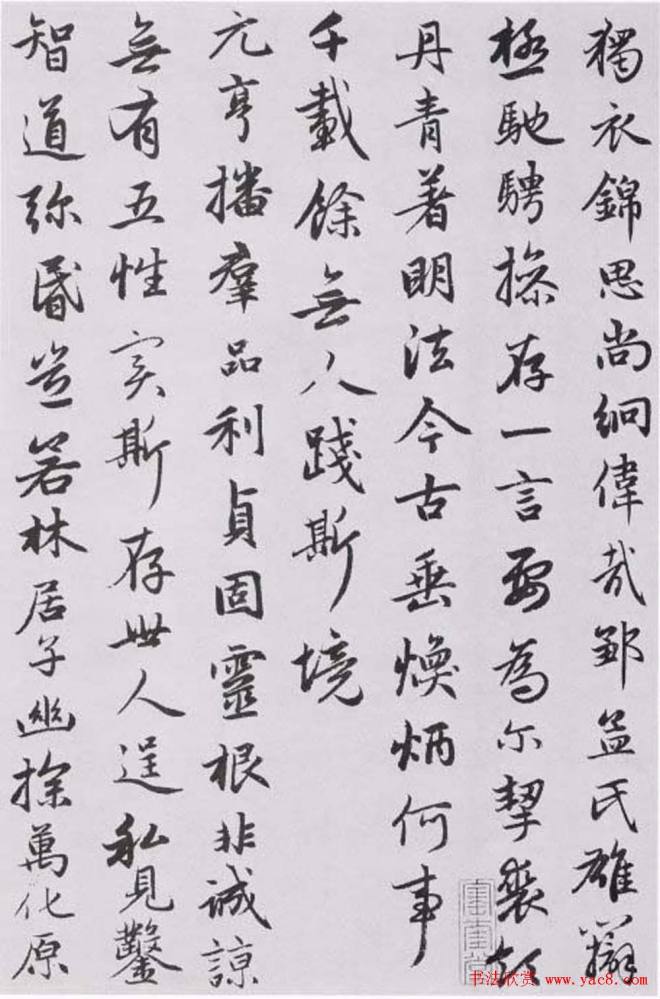 獨衣錦思尚絅偉哉鄒孟氏雄辯
極馳騁操存一言要為尔挈裘領
丹青著明法今古垂煥炳何事
千載餘無人踐斯境
元亨播羣品利貞固靈根非誠諒
無有五性實斯存世人逞私見鑿
智道弥昏豈若林居子幽探萬化原
书法欣赏 www.yac8.com